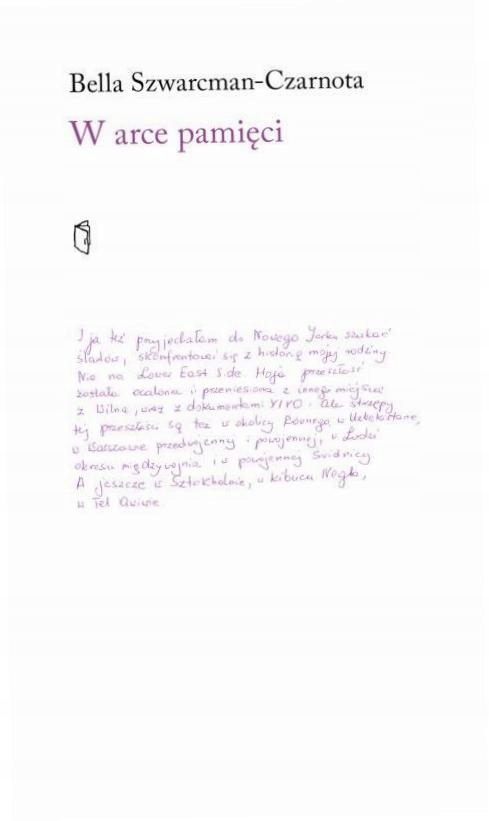 Bella Szwarcman-Czarnota
W arce pamięci
I ja też przyjechałam do Nowego Jorku szukać
śladów, skonfrontować się z historią mojej rodziny.
Nie na Lower East Side. Moja przeszłość
została ocalona i przeniesiona z innego miejsca
z Wilna, wraz z dokumentami YIVO. Ale strzępy
tej przeszłości są też w okolicy Równego, w Uzbekistanie,
w Warszawie przedwojennej i powojennej, w Łodzi
okresu międzywojnia i w powojennej Świdnicy
A jeszcze w Sztokholmie, w kibucu Negba,
w Tel Awiwie.